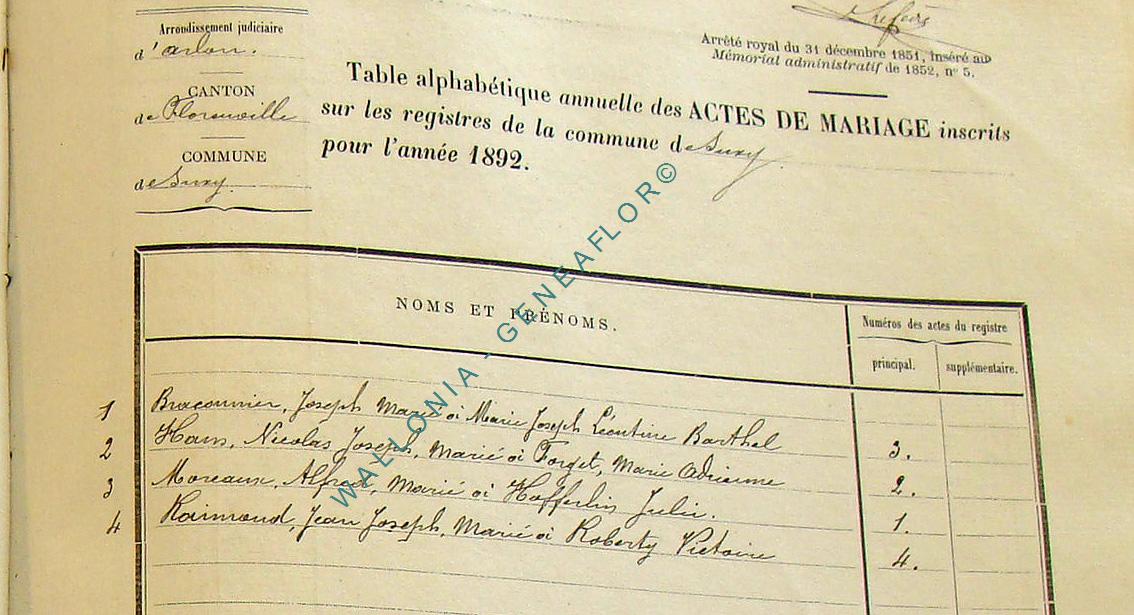 Arrondissement judiciaire
d'arlon.
CANTON
de Florenville
COMMUNE
de Suxy
Arrêté royal du 31 décembre 1851, inséré au
Mémorial administratif de 1852, n° 5.
Table alphabétique annuelle des ACTES DE MARIAGE inscrits
sur les registres de la commune de Suxy
pour l'année 1892.
NOMS ET PRÉNOMS.
Numéros des actes du registre
principal.
supplémentaire.
1 Braconnier, Joseph Marié à Marie Joseph Léontine Barthel 3.
2 Hans, Nicolas Joseph, Marié à Forget, Marie Adrienne 2.
3 Moreaux, Alfred, Marié à Hofferlin Julie. 1.
4 Raimond, Jean Joseph, Marié à Roberty Victoire 4.
WALLONIA - GENEAFLOR©